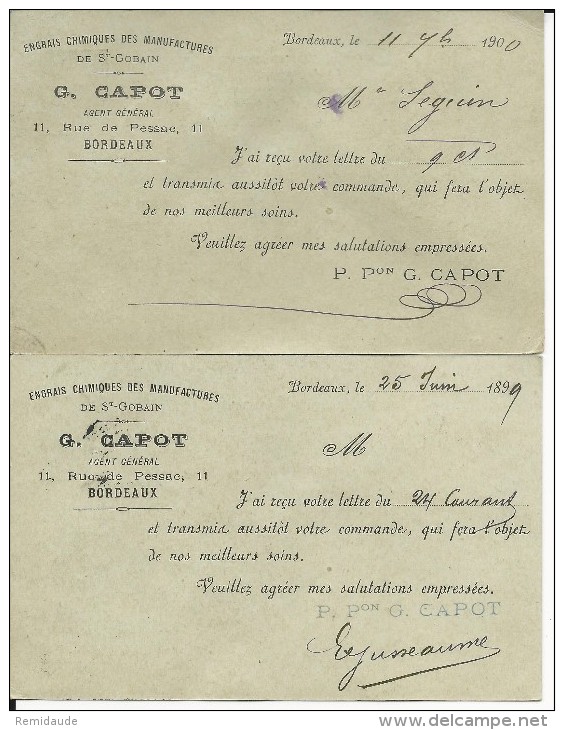 ENGRAIS CHIMIQUES DES MANUFACTURES
DE ST-GOBAIN
G. CAPOT
AGENT GÉNÉRAL
11, Rue de Pessac, 11
BORDEAUX
Bordeaux, le 11 7b 1900
Mr Seguin
J'ai reçu votre lettre du 9 ct
et transmis aussitôt votre commande, qui fera l'objet
de nos meilleurs soins.
Veuillez agréer mes salutations empressées.
P. PON G. CAPOT
ENGRAIS CHIMIQUES DES MANUFACTURES
DE ST-GOBAIN
G. CAPOT
AGENT GÉNÉRAL
11, Rue de Pessac, 11
BORDEAUX
Bordeaux, le 25 Juin 1899
M
J'ai reçu votre lettre du 24 Courant
et transmis aussitôt votre commande, qui fera l'objet
de nos meilleurs soins.
Veuillez agréer mes salutations empressées.
P. PON G. CAPOT
Remidaude
delcampe.net